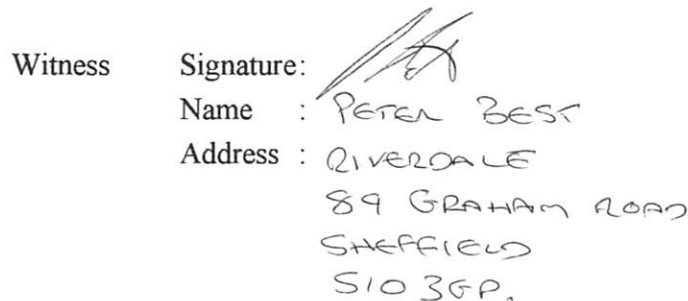 Witness Signature:
Name : PETER BEST
Address : RIVERDALE
89 GRAHAM ROAD
SHEFFIELD
S10 3GP.